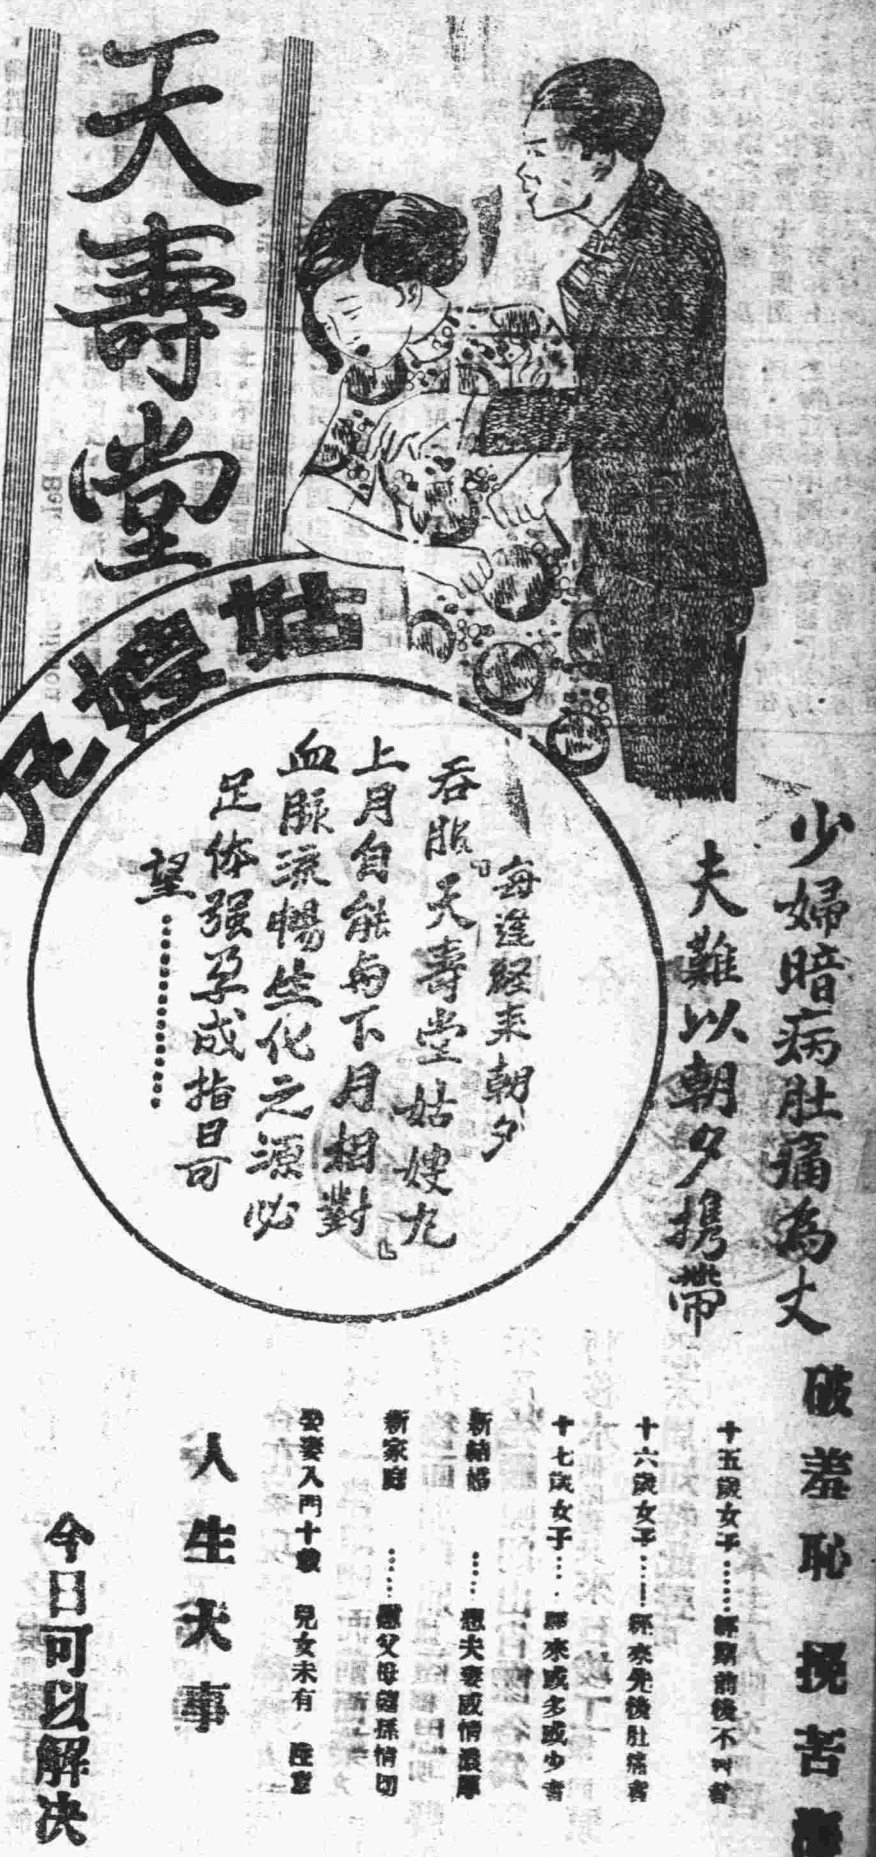 天壽堂
姑嫂丸
少婦暗病肚痛為丈
夫難以朝夕携帶
每逢經來朝夕
吞服『天壽堂姑嫂九』
上月自能與下月相對
血脉流暢生化之源必
足体强孕成指日可
望…………
破羞恥 挽苦海
十五歲女子……經期前後不叫者
十六歲女子……經來先後肚痛者
十七歲女子……經來或多或少者
新結婚……想夫妻感情濃厚
新家庭……慰父母孫情切
娶妻入門十載 兒女未有 注意
人生大事
今日可以解决